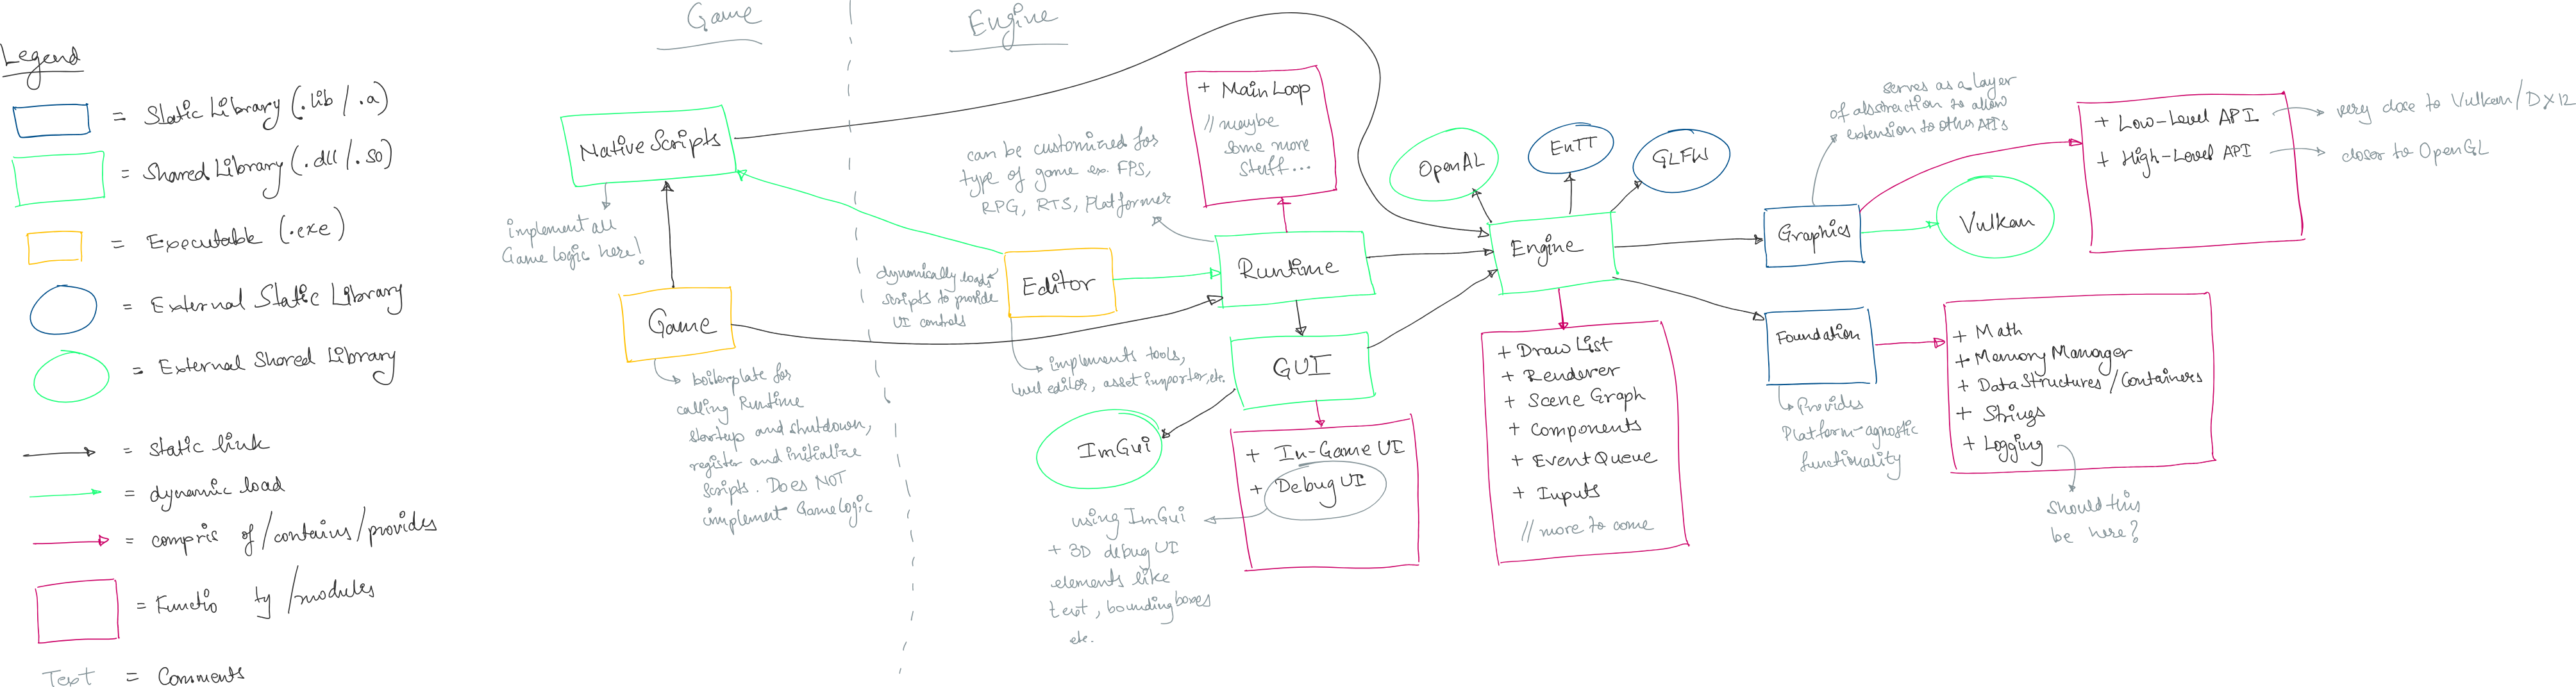 Game
Engine
Legend
= Static Library (.lib / .a)
= Shared Library (.dll / .so)
= Executable (.exe)
= External Static Library
= External Shared Library
= static link
= dynamic load
= compris of / contains / provides
= Functio ty / modules
Text = Comments
Native Scripts
implement all
Game Logic here!
Game
boilerplate for
calling Runtime
startup and shutdown,
register and initialize
scripts. Does NOT
implement Game Logic
dynamically loads
scripts to provide
UI controls
Editor
implements tools,
level editor, asset importer, etc.
can be customized for
type of game ex. FPS,
RPG, RTS, Platformer
+ Main Loop
// maybe
some more
stuff...
Runtime
GUI
ImGui
+ In-Game UI
+ Debug UI
using ImGui
+ 3D debug UI
elements like
text, bounding boxes
etc.
OpenAL
EnTT
GLFW
Engine
+ Draw List
+ Renderer
+ Scene Graph
+ Components
+ Event Queue
+ Inputs
// more to come
serves as a layer
of abstraction to allow
extension to other APIs
Graphics
Vulkan
+ Low-Level API
+ High-Level API
very close to Vulkan / DX12
closer to OpenGL
Foundation
Provides
Platform-agnostic
functionality
+ Math
+ Memory Manager
+ Data Structures / Containers
+ Strings
+ Logging
should this
be here?